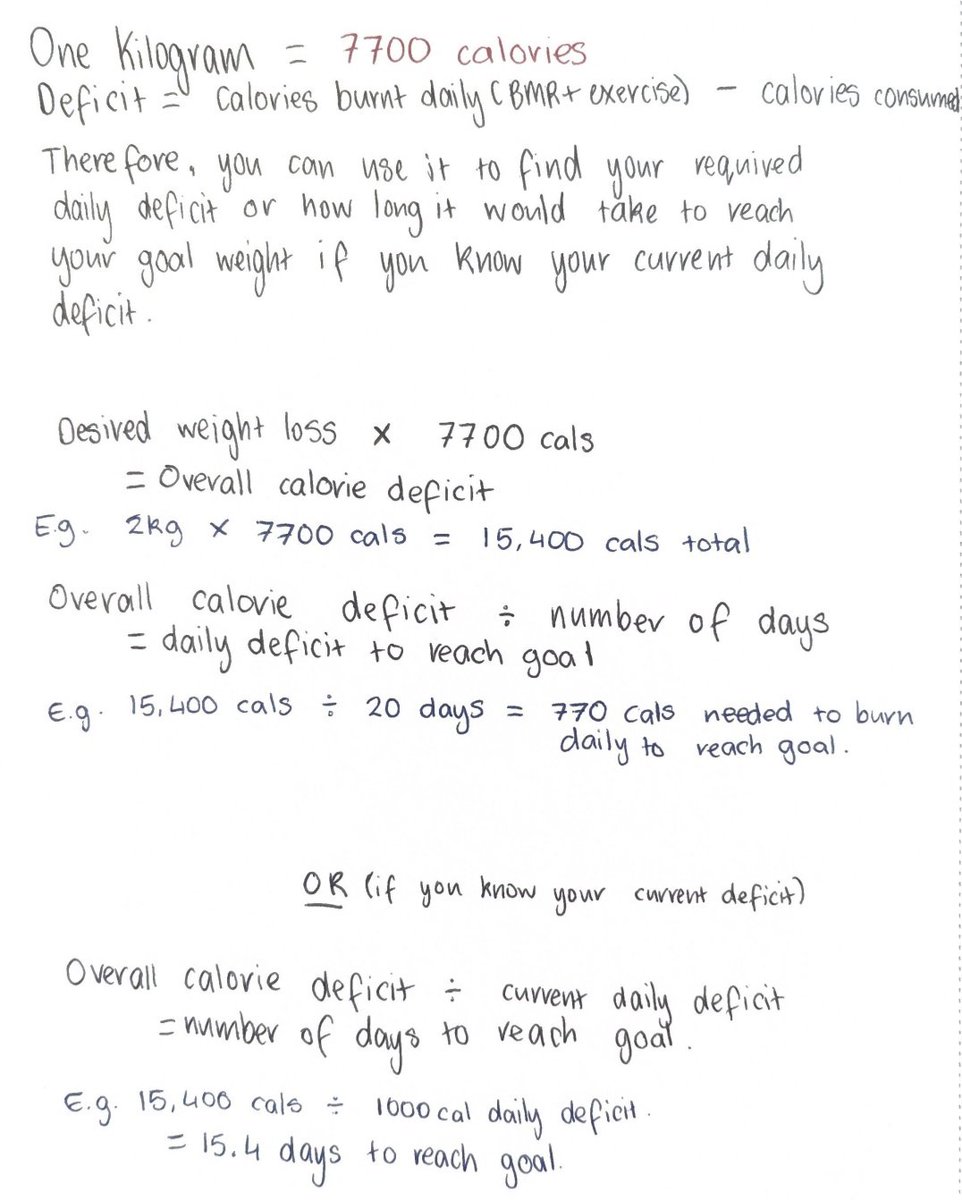 One Kilogram = 7700 calories
Deficit = Calories burnt daily (BMR + exercise) - calories consumed
Therefore, you can use it to find your required
daily deficit or how long it would take to reach
your goal weight if you know your current daily
deficit.
Desired weight loss x 7700 cals
= Overall calorie deficit
E.g. 2kg x 7700 cals = 15,400 cals total
Overall calorie deficit ÷ number of days
= daily deficit to reach goal
E.g. 15,400 cals ÷ 20 days = 770 cals needed to burn
daily to reach goal.
OR (if you know your current deficit)
Overall calorie deficit ÷ current daily deficit
= number of days to reach goal.
E.g. 15,400 cals ÷ 1000 cal daily deficit.
= 15.4 days to reach goal.